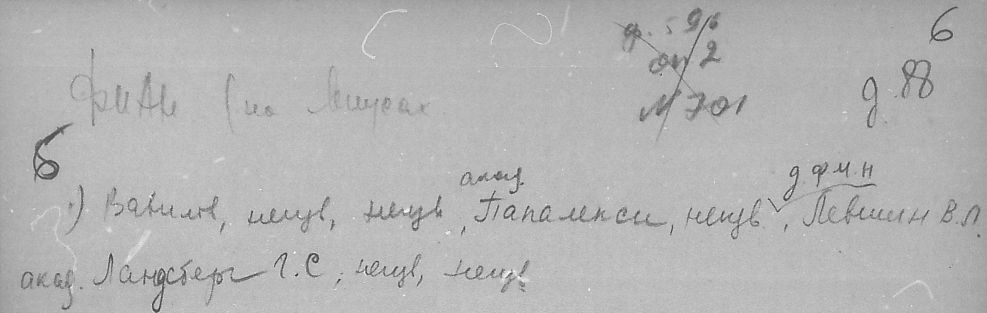 6
ф. 596
оп 2
№ 701
д. 88
ФИАН (на Миусах
б
1) Вавилов, неизв, неизв, акад. Папалекси, неизв, дфмн Левшин В.Л.
акад. Ландсберг Г.С, неизв, неизв